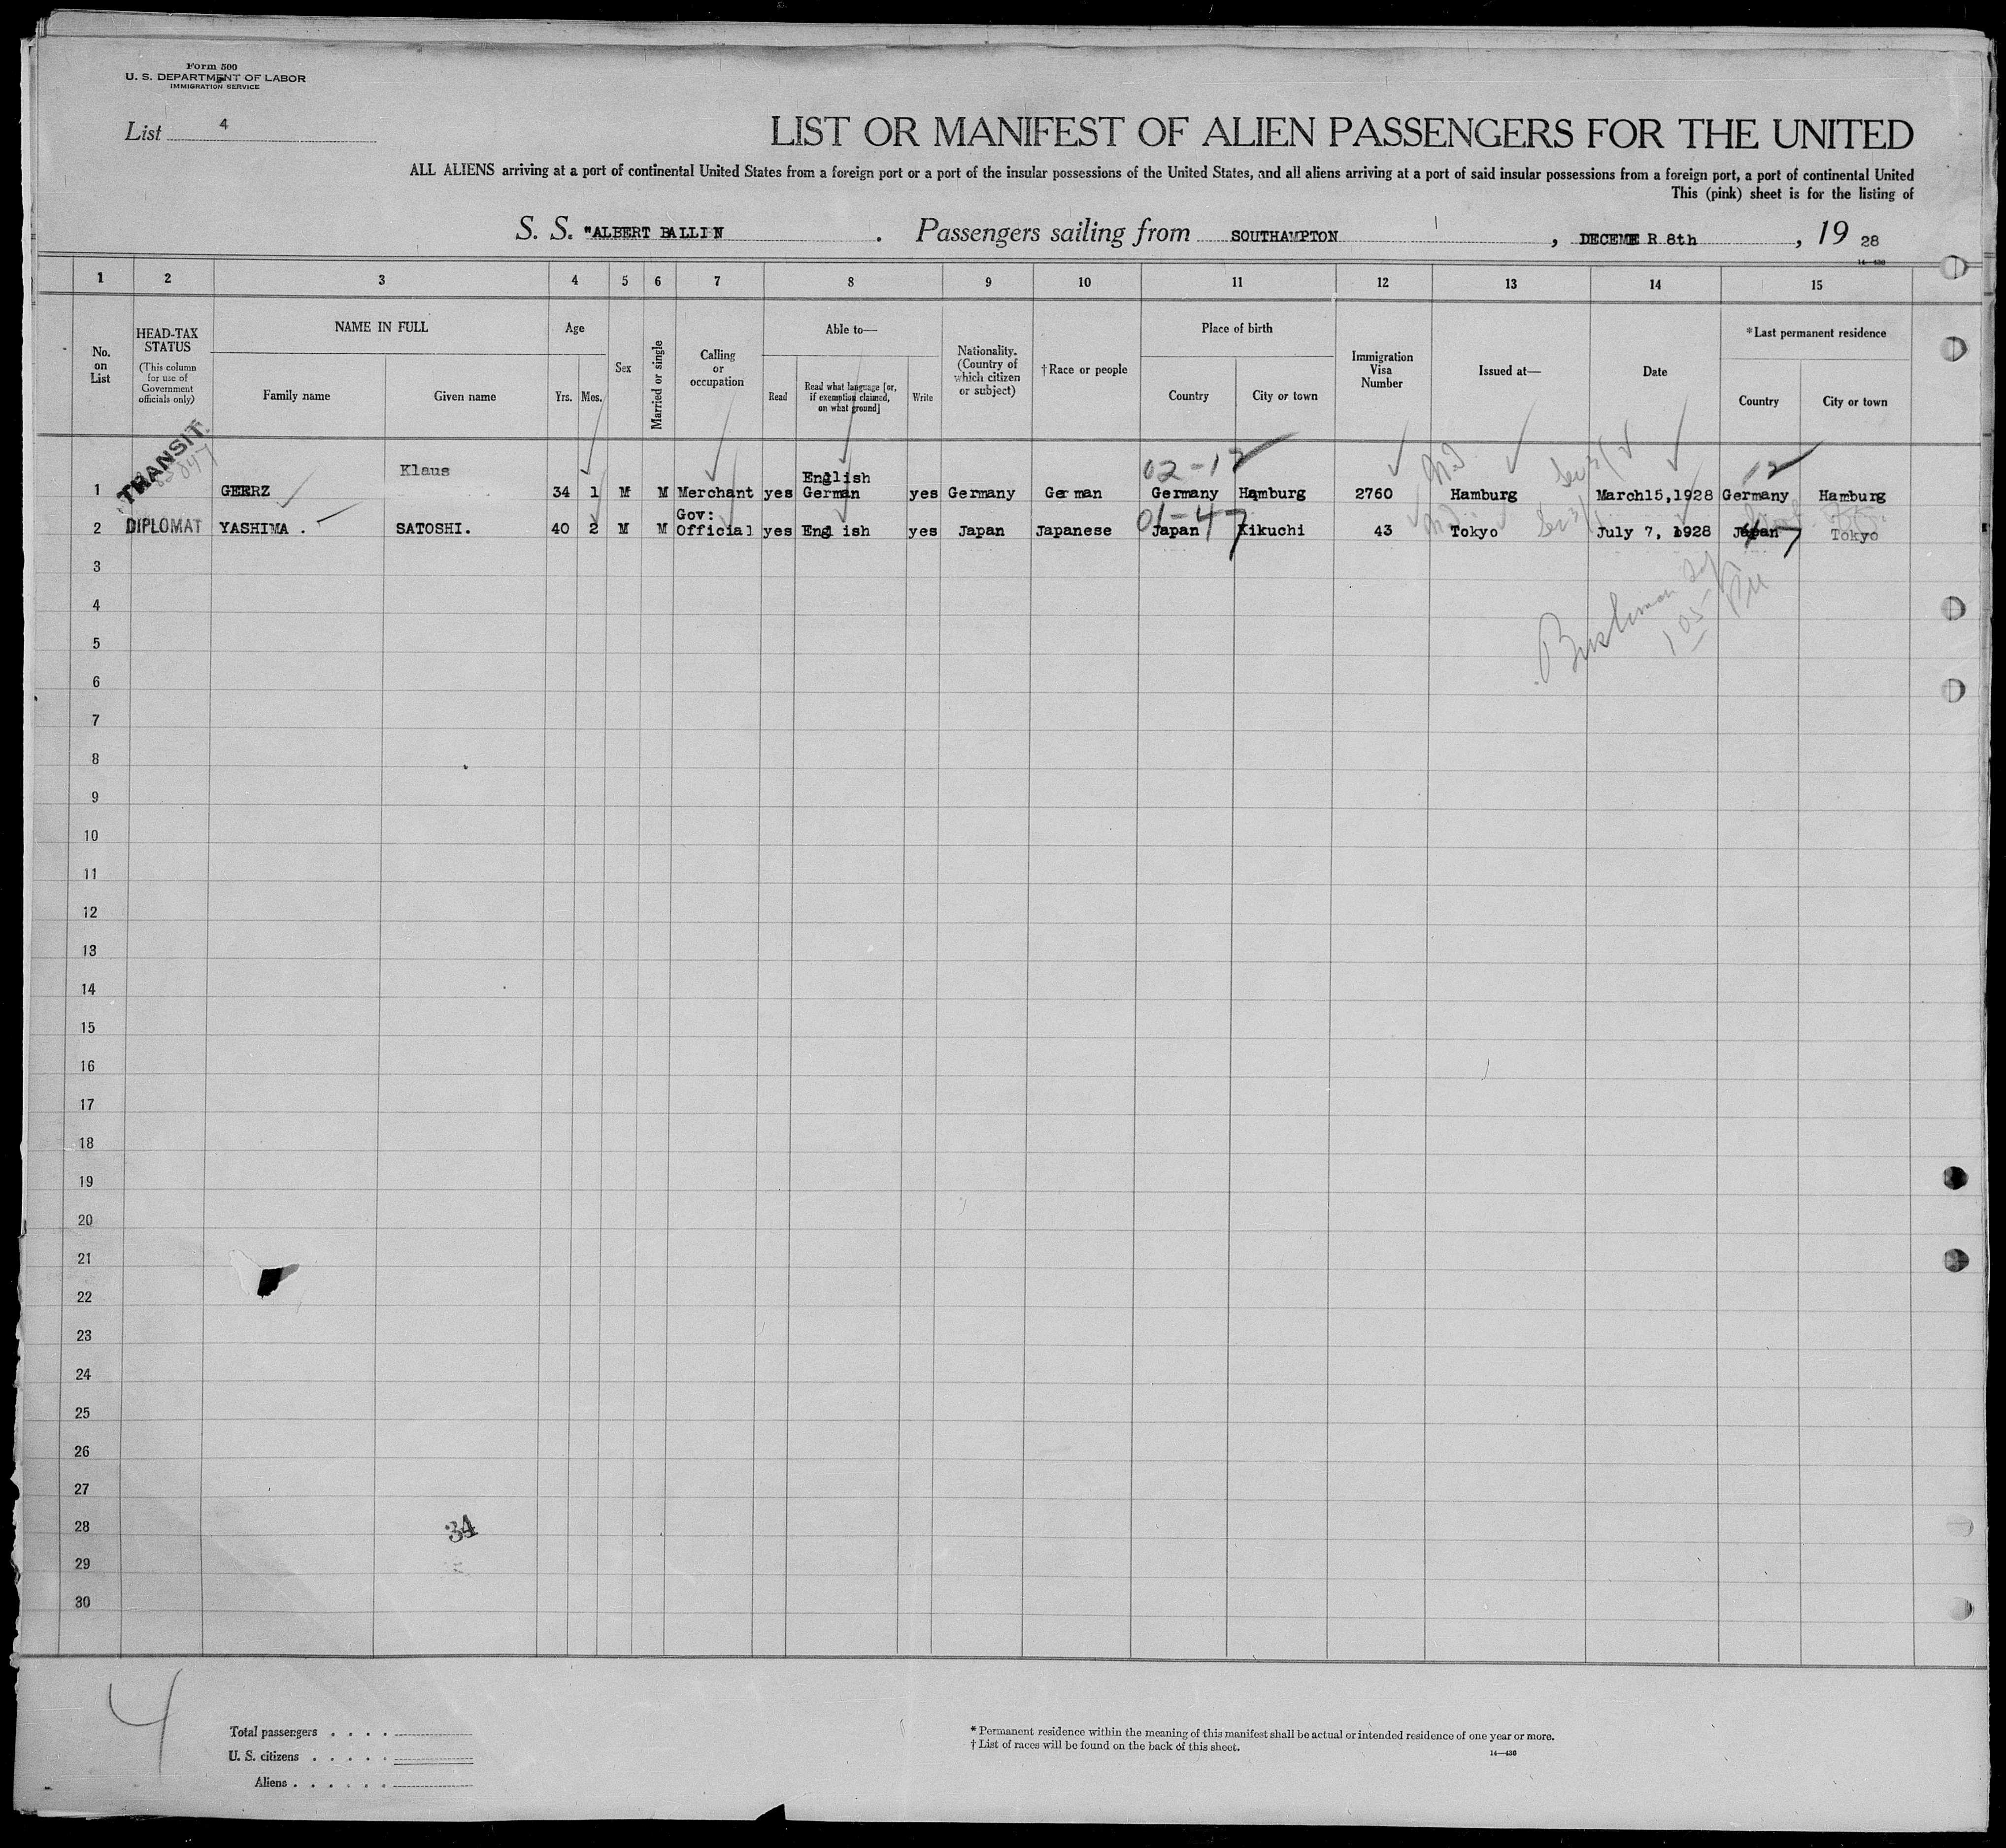 Form 500
U. S. DEPARTMENT OF LABOR
IMMIGRATION SERVICE
List 4
LIST OR MANIFEST OF ALIEN PASSENGERS FOR THE UNITED
ALL ALIENS arriving at a port of continental United States from a foreign port or a port of the insular possessions of the United States, and all aliens arriving at a port of said insular possessions from a foreign port, a port of continental United
This (pink) sheet is for the listing of
S. S. "ALBERT BALLIN . Passengers sailing from SOUTHAMPTON , DECEME R 8th , 19 28
14—430
1 2 3 4 5 6 7 8 9 10 11 12 13 14 15
No. on List
HEAD-TAX STATUS
(This column for use of Government officials only)
NAME IN FULL
Family name
Given name
Age
Yrs.
Mos.
Sex
Married or single
Calling or occupation
Able to—
Read
Read what language [or, if exemption claimed, on what ground]
Write
Nationality. (Country of which citizen or subject)
†Race or people
Place of birth
Country
City or town
Immigration Visa Number
Issued at—
Date
*Last permanent residence
Country
City or town
TRANSIT.
02-12
12
Klaus English
1 GEERZ 34 1 M M Merchant yes German yes Germany Ge man Germany Hamburg 2760 Hamburg March15,1928 Germany Hamburg
Gov: 01-47
2 DIPLOMAT YASHIMA . SATOSHI. 40 2 M M Official yes Engl ish yes Japan Japanese Japan Kikuchi 43 Tokyo July 7, 1928 Japan Tokyo
47
3
4
5
6
7
8
9
10
11
12
13
14
15
16
17
18
19
20
21
22
23
24
25
26
27
28
34
29
30
4
Total passengers . . . .
U. S. citizens . . . . .
Aliens . . . . . .
* Permanent residence within the meaning of this manifest shall be actual or intended residence of one year or more.
† List of races will be found on the back of this sheet.
14—430